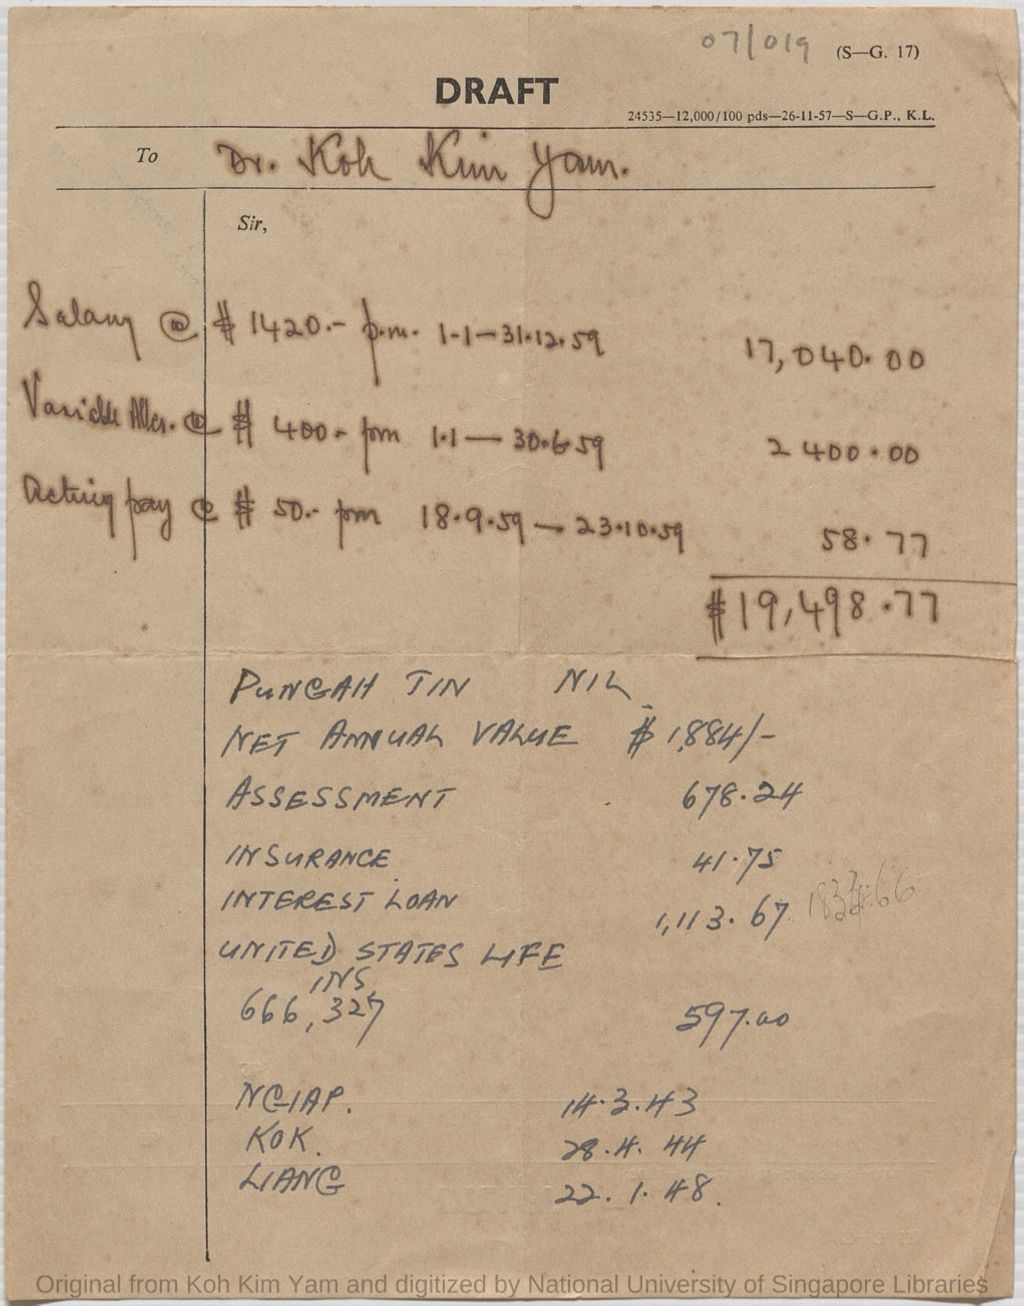 07/019 (S—G. 17)
DRAFT
24535—12,000/100 pds—26-11-57—S—G.P., K.L.
To Dr. Koh Kim Yam.
Sir,
Salary @ $ 1420.- p.m. 1-1—31.12.59 17,040.00
Variable Allce. @ $ 400.- pm 1.1 — 30.6.59 2 400.00
Acting pay @ $ 50.- pm 18.9.59 — 23.10.59 58.77
$19,498.77
PUNGAH TIN NIL
NET ANNUAL VALUE $ 1,884/-
ASSESSMENT 678.24
INSURANCE 41.75
INTEREST LOAN 1,113.67
UNITED STATES LIFE
INS
666,327 597.00
NGIAP. 14.3.43
KOK. 28.4.44
LIANG 22.1.48.
Original from Koh Kim Yam and digitized by National University of Singapore Libraries